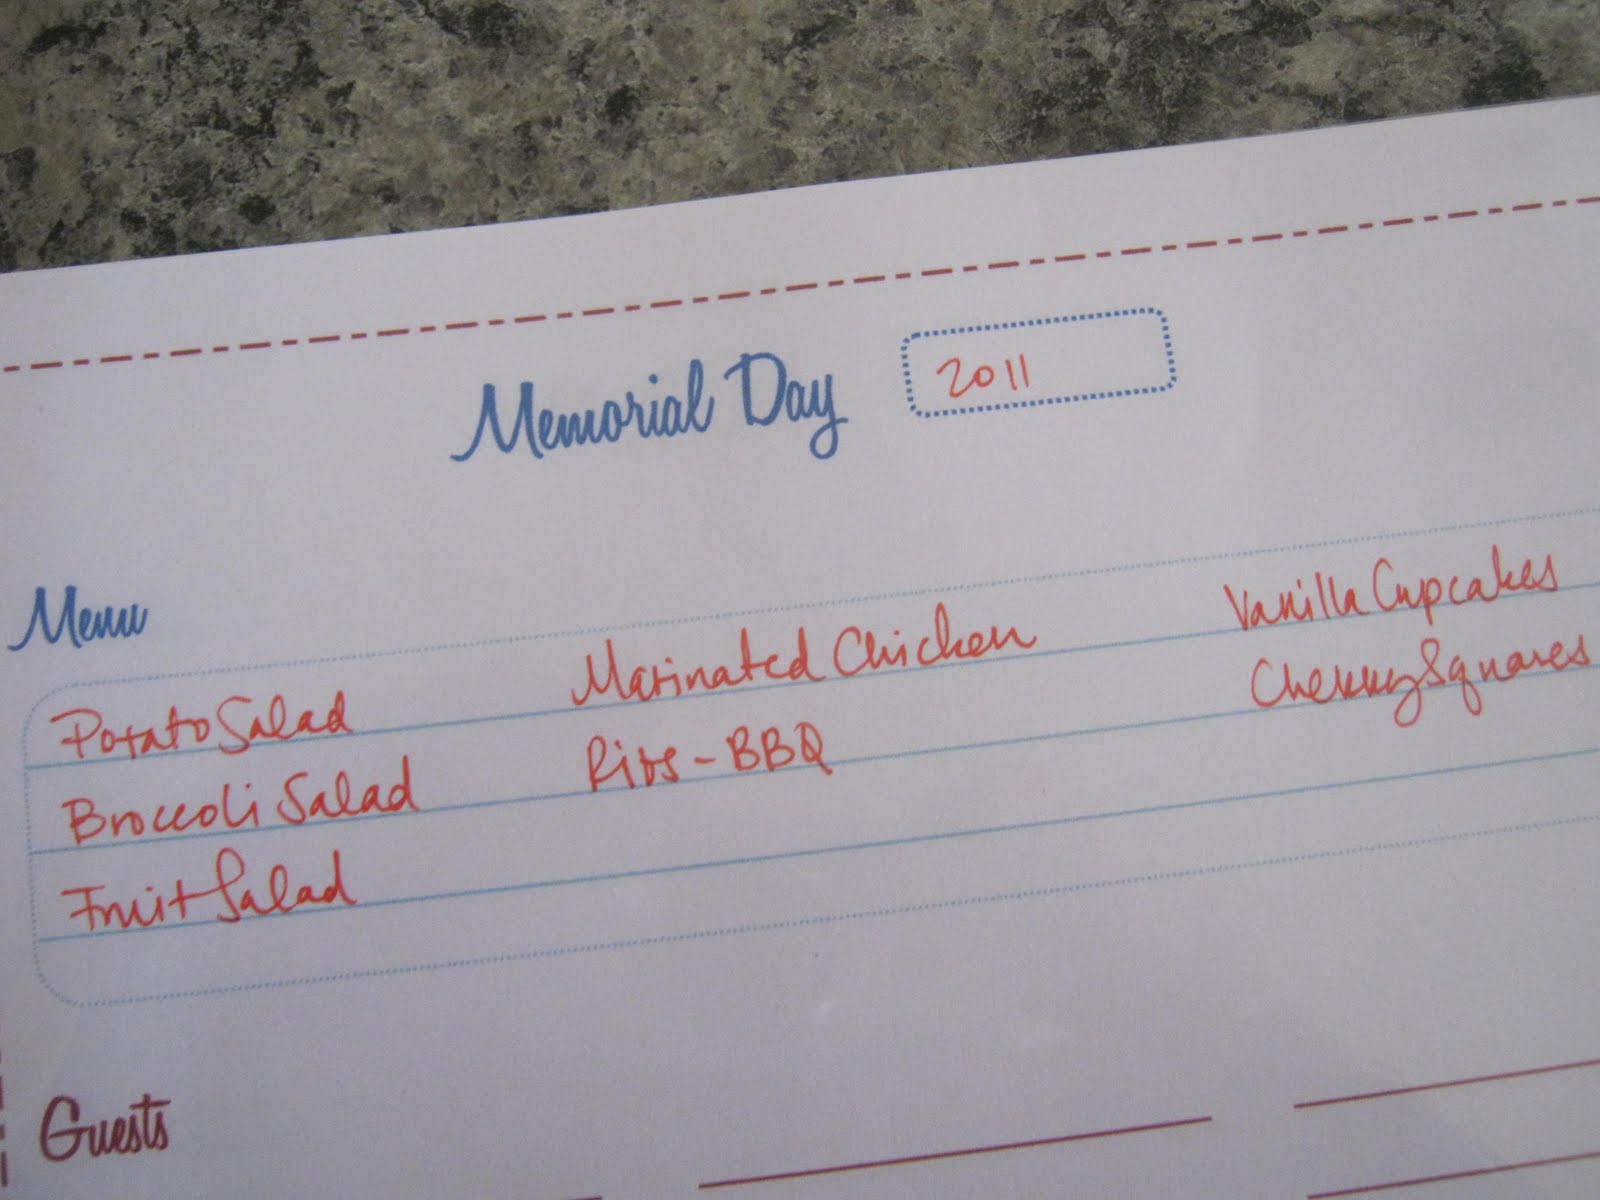 Memorial Day 2011
Menu
Potato Salad Marinated Chicken Vanilla Cupcakes
Broccoli Salad Ribs - BBQ Cherry Squares
Fruit Salad
Guests